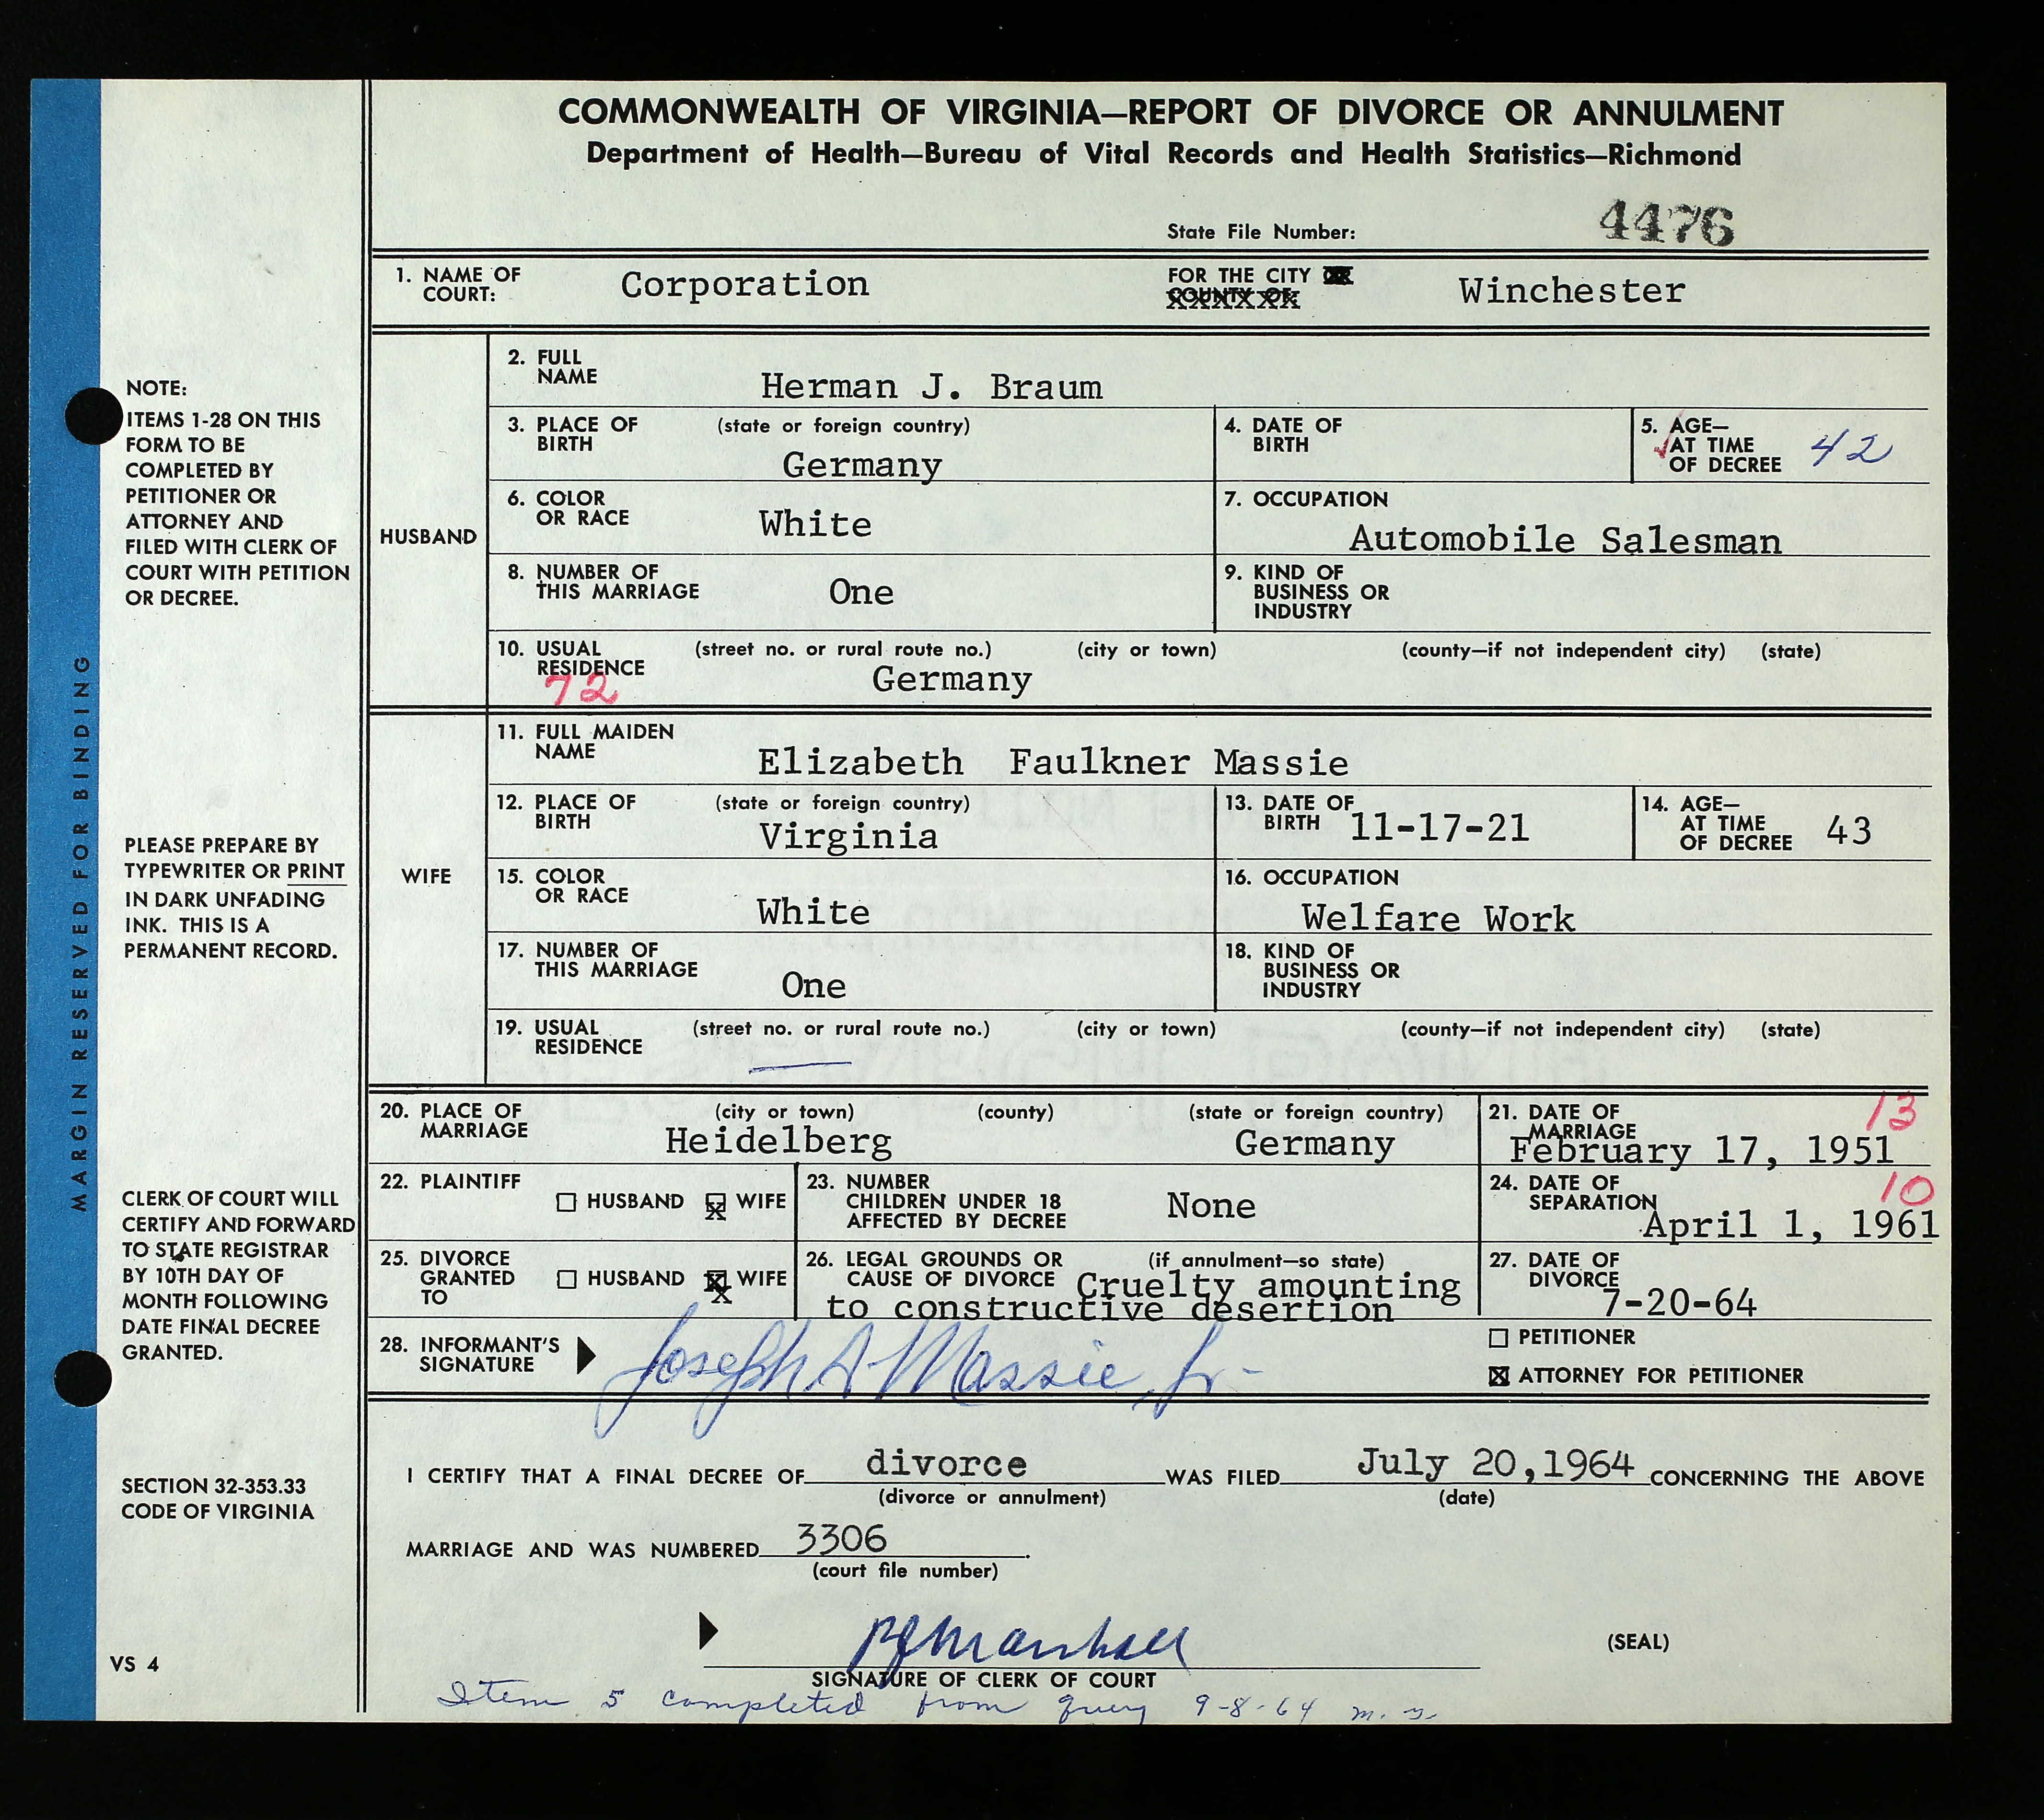 COMMONWEALTH OF VIRGINIA—REPORT OF DIVORCE OR ANNULMENT
Department of Health—Bureau of Vital Records and Health Statistics—Richmond
State File Number: 4476
1. NAME OF COURT: Corporation FOR THE CITY OR COUNTY OF: Winchester
HUSBAND
2. FULL NAME Herman J. Braum
3. PLACE OF BIRTH (state or foreign country) Germany
4. DATE OF BIRTH
5. AGE— AT TIME OF DECREE 42
6. COLOR OR RACE White
7. OCCUPATION Automobile Salesman
8. NUMBER OF THIS MARRIAGE One
9. KIND OF BUSINESS OR INDUSTRY
10. USUAL RESIDENCE (street no. or rural route no.) (city or town) (county—if not independent city) (state)
72 Germany
WIFE
11. FULL MAIDEN NAME Elizabeth Faulkner Massie
12. PLACE OF BIRTH (state or foreign country) Virginia
13. DATE OF BIRTH 11-17-21
14. AGE— AT TIME OF DECREE 43
15. COLOR OR RACE White
16. OCCUPATION Welfare Work
17. NUMBER OF THIS MARRIAGE One
18. KIND OF BUSINESS OR INDUSTRY
19. USUAL RESIDENCE (street no. or rural route no.) (city or town) (county—if not independent city) (state)
20. PLACE OF MARRIAGE (city or town) (county) (state or foreign country)
Heidelberg Germany
21. DATE OF MARRIAGE 13
February 17, 1951
22. PLAINTIFF HUSBAND X WIFE
23. NUMBER CHILDREN UNDER 18 AFFECTED BY DECREE None
24. DATE OF SEPARATION 10
April 1, 1961
25. DIVORCE GRANTED TO HUSBAND X WIFE
26. LEGAL GROUNDS OR CAUSE OF DIVORCE (if annulment—so state)
Cruelty amounting
to constructive desertion
27. DATE OF DIVORCE 7-20-64
28. INFORMANT'S SIGNATURE Joseph A Massie, Jr-
PETITIONER
X ATTORNEY FOR PETITIONER
I CERTIFY THAT A FINAL DECREE OF divorce WAS FILED July 20,1964 CONCERNING THE ABOVE
(divorce or annulment) (date)
MARRIAGE AND WAS NUMBERED 3306.
(court file number)
Marshall
(SEAL)
SIGNATURE OF CLERK OF COURT
Item 5 completed from query 9-8-64
MARGIN RESERVED FOR BINDING
NOTE:
ITEMS 1-28 ON THIS
FORM TO BE
COMPLETED BY
PETITIONER OR
ATTORNEY AND
FILED WITH CLERK OF
COURT WITH PETITION
OR DECREE.
PLEASE PREPARE BY
TYPEWRITER OR PRINT
IN DARK UNFADING
INK. THIS IS A
PERMANENT RECORD.
CLERK OF COURT WILL
CERTIFY AND FORWARD
TO STATE REGISTRAR
BY 10TH DAY OF
MONTH FOLLOWING
DATE FINAL DECREE
GRANTED.
SECTION 32-353.33
CODE OF VIRGINIA
VS 4